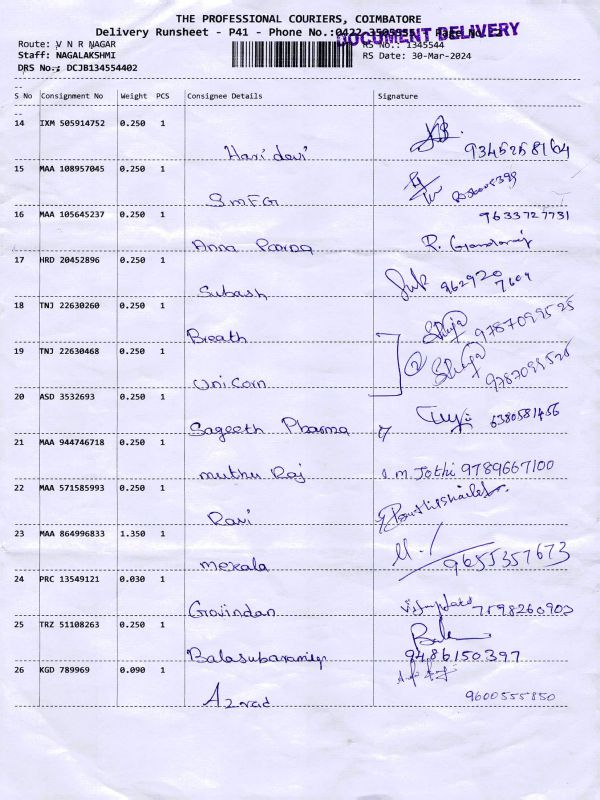 THE PROFESSIONAL COURIERS, COIMBATORE
Delivery Runsheet - P41 - Phone No.:0422-3505555 Page No.: 2
DOCUMENT DELIVERY
Route: V N R NAGAR
RS No.: 1345544
Staff: NAGALAKSHMI
RS Date: 30-Mar-2024
DRS No.: DCJB134554402
S No Consignment No Weight PCS Consignee Details Signature
14 IXM 505914752 0.250 1
Hari devi 9345258164
15 MAA 108957045 0.250 1
SMFG
16 MAA 105645237 0.250 1 9633727731
Anna
17 HRD 20452896 0.250 1
Subash 962920 7604
18 TNJ 22630260 0.250 1
Breath 9787099525
19 TNJ 22630468 0.250 1
Unicorn 9787099525
20 ASD 3532693 0.250 1
Sageeth Pharma 6380581456
21 MAA 944746718 0.250 1
muthu Raj M. Jothi 9789667100
22 MAA 571585993 0.250 1
Ravi
23 MAA 864996833 1.350 1
mekala 9655357673
24 PRC 13549121 0.030 1
Govindan 7598260903
25 TRZ 51108263 0.250 1
9486150397
26 KGD 789969 0.090 1
9600555850